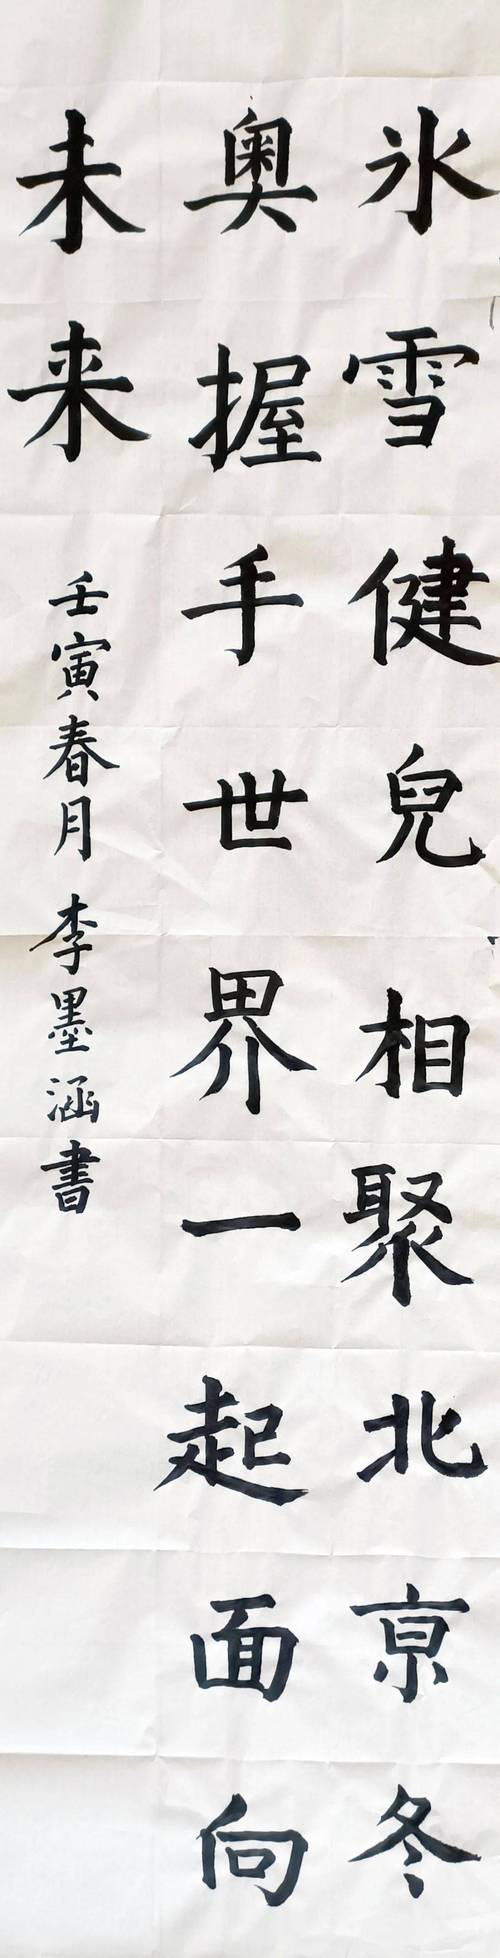 氷雪健兒相聚北京冬
奧握手世界一起面向
未来
壬寅春月李墨涵書